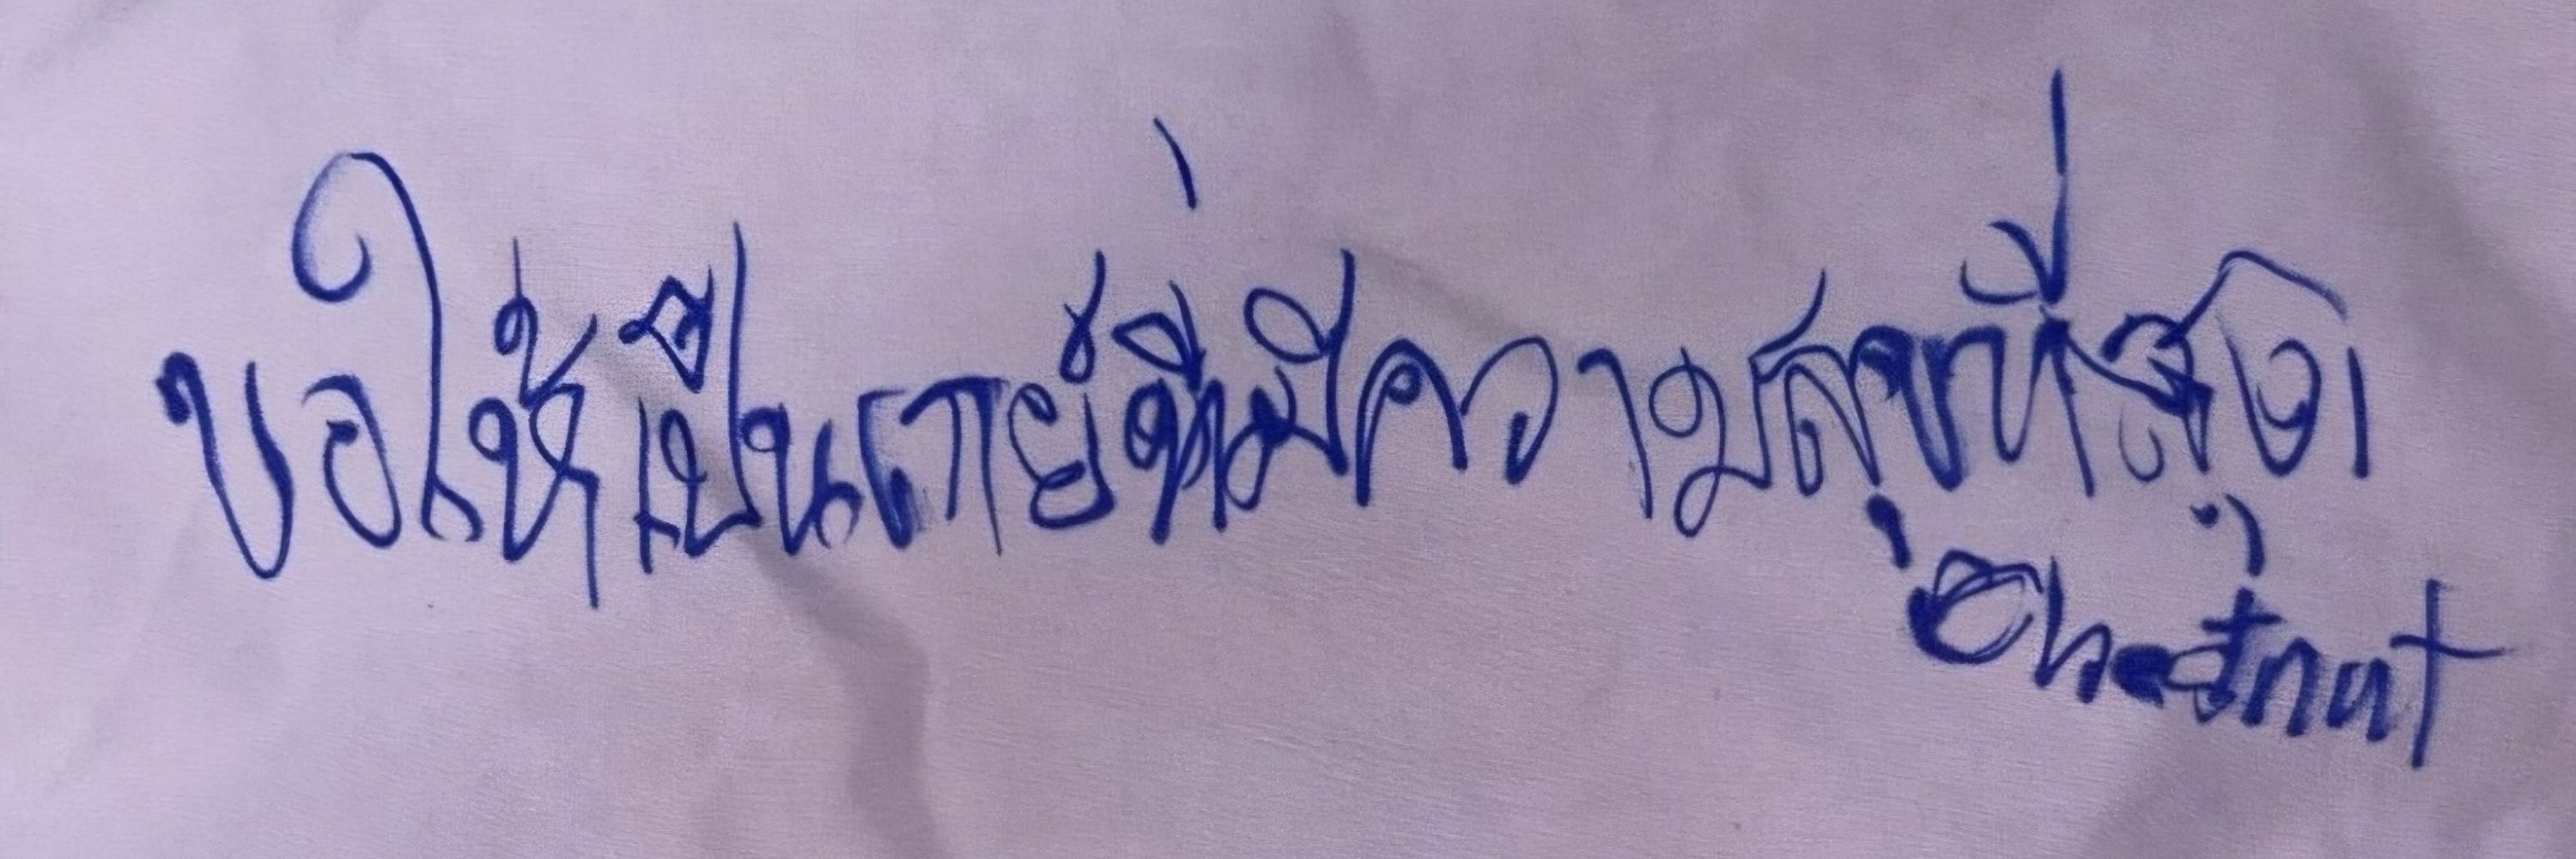 ขอให้เป็นเกย์ที่มีความสุขที่สุด
Chestnut